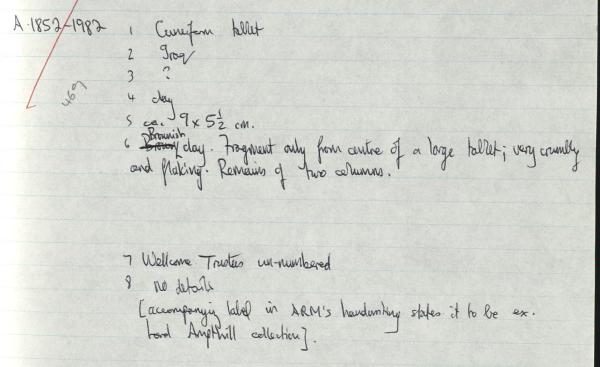 A.1852-1982
1 Cuneiform tablet
2 Iraq
3 ?
469
4 clay
5 ca. 9 x 5½ cm.
6 Brownish clay. Fragment only from centre of a large tablet; very crumbly
and flaking. Remains of two columns.
7 Wellcome Trustees un-numbered
8 no details
[accompanying label in ARM's handwriting states it to be ex.
Lord Ampthill collection].